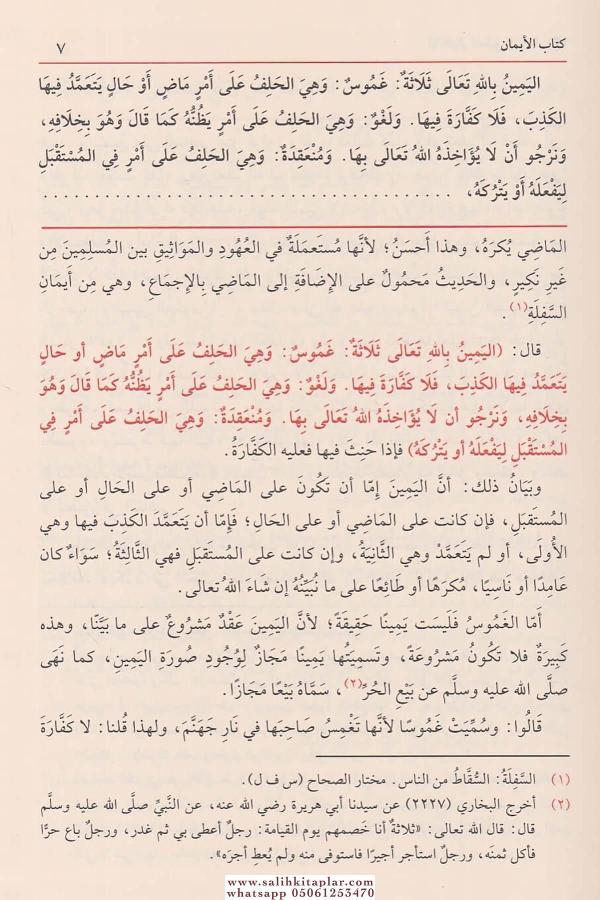 كتاب الأيمان ٧
اليَمِينُ بِاللهِ تَعَالَى ثَلَاثَةٌ: غَمُوسٌ: وَهِيَ الحَلِفُ عَلَى أَمْرٍ مَاضٍ أَوْ حَالٍ يَتَعَمَّدُ فِيهَا
الكَذِبَ، فَلَا كَفَّارَةَ فِيهَا. وَلَغْوٌ: وَهِيَ الحَلِفُ عَلَى أَمْرٍ يَظُنُّهُ كَمَا قَالَ وَهُوَ بِخِلَافِهِ،
وَنَرْجُو أَنْ لَا يُؤَاخِذَهُ اللهُ تَعَالَى بِهَا. وَمُنْعَقِدَةٌ: وَهِيَ الحَلِفُ عَلَى أَمْرٍ فِي المُسْتَقْبَلِ
لِيَفْعَلَهُ أَوْ يَتْرُكَهُ، ......................................
المَاضِي يُكرَهُ، وهذا أَحسَنُ؛ لأنَّها مُستَعمَلَةٌ في العُهُودِ والمَوَاثِيقِ بين المُسلِمِينَ مِن
غَيرِ نَكِيرٍ، والحَدِيثُ مَحمُولٌ على الإِضَافَةِ إلى المَاضِي بِالإِجمَاعِ، وهي مِن أَيمَانِ
السَّفِلَةِ(١).
قال: (اليَمِينُ بِاللهِ تَعَالَى ثَلَاثَةٌ: غَمُوسٌ: وَهِيَ الحَلِفُ عَلَى أَمْرٍ مَاضٍ أو حَالٍ
يَتَعَمَّدُ فِيهَا الكَذِبَ، فَلَا كَفَّارَةَ فِيهَا. وَلَغْوٌ: وَهِيَ الحَلِفُ عَلَى أَمْرٍ يَظُنُّهُ كَمَا قَالَ وَهُوَ
بِخِلَافِهِ، وَنَرْجُو أن لَا يُؤَاخِذَهُ اللهُ تَعَالَى بِهَا. وَمُنْعَقِدَةٌ: وَهِيَ الحَلِفُ عَلَى أَمْرٍ فِي
المُسْتَقْبَلِ لِيَفْعَلَهُ أو يَتْرُكَهُ) فإذا حَنِثَ فيها فعليه الكَفَّارَةُ.
وبَيَانُ ذلك: أنَّ اليَمِينَ إمَّا أن تَكُونَ على المَاضِي أو على الحَالِ أو على
المُستَقبَلِ، فإن كانت على المَاضِي أو على الحَالِ؛ فَإِمَّا أن يَتَعَمَّدَ الكَذِبَ فيها وهي
الأُولَى، أو لم يَتَعَمَّدْ وهي الثَّانِيَةُ، وإن كانت على المُستَقبَلِ فهي الثَّالِثَةُ؛ سَوَاءٌ كان
عَامِدًا أو نَاسِيًا، مُكرَهًا أو طَائِعًا على ما نُبَيِّنُهُ إن شَاءَ اللهُ تعالى.
أَمَّا الغَمُوسُ فَلَيسَت يَمِينًا حَقِيقَةً؛ لأنَّ اليَمِينَ عَقْدٌ مَشرُوعٌ على ما بَيَّنَّا، وهذه
كَبِيرَةٌ فلا تَكُونُ مَشرُوعَةً، وتَسمِيَتُها يَمِينًا مَجَازٌ لِوُجُودِ صُورَةِ اليَمِينِ، كما نَهَى
صلَّى الله عليه وسلَّم عن بَيْعِ الحُرِّ(٢)، سَمَّاهُ بَيْعًا مَجَازًا.
قَالُوا: وسُمِّيَتْ غَمُوسًا لأنَّها تَغْمِسُ صَاحِبَها في نَارِ جَهَنَّمَ، ولهذا قُلنا: لا كَفَّارَةَ
(١) السَّفِلَةُ: السُّقَّاطُ من الناس. مختار الصحاح (س ف ل).
(٢) أخرج البخاري (٢٢٢٧) عن سيدنا أبي هريرة رضي الله عنه، عن النَّبيِّ صلَّى الله عليه وسلَّم
قال: قال الله تعالى: «ثلاثةٌ أنا خَصمهم يوم القيامة: رجلٌ أعطى بي ثم غدر، ورجلٌ باع حرًّا
فأكل ثمنَه، ورجلٌ استأجر أجيرًا فاستوفى منه ولم يُعطِ أجرَه».
www.salihkitaplar.com
whatsapp 05061253470